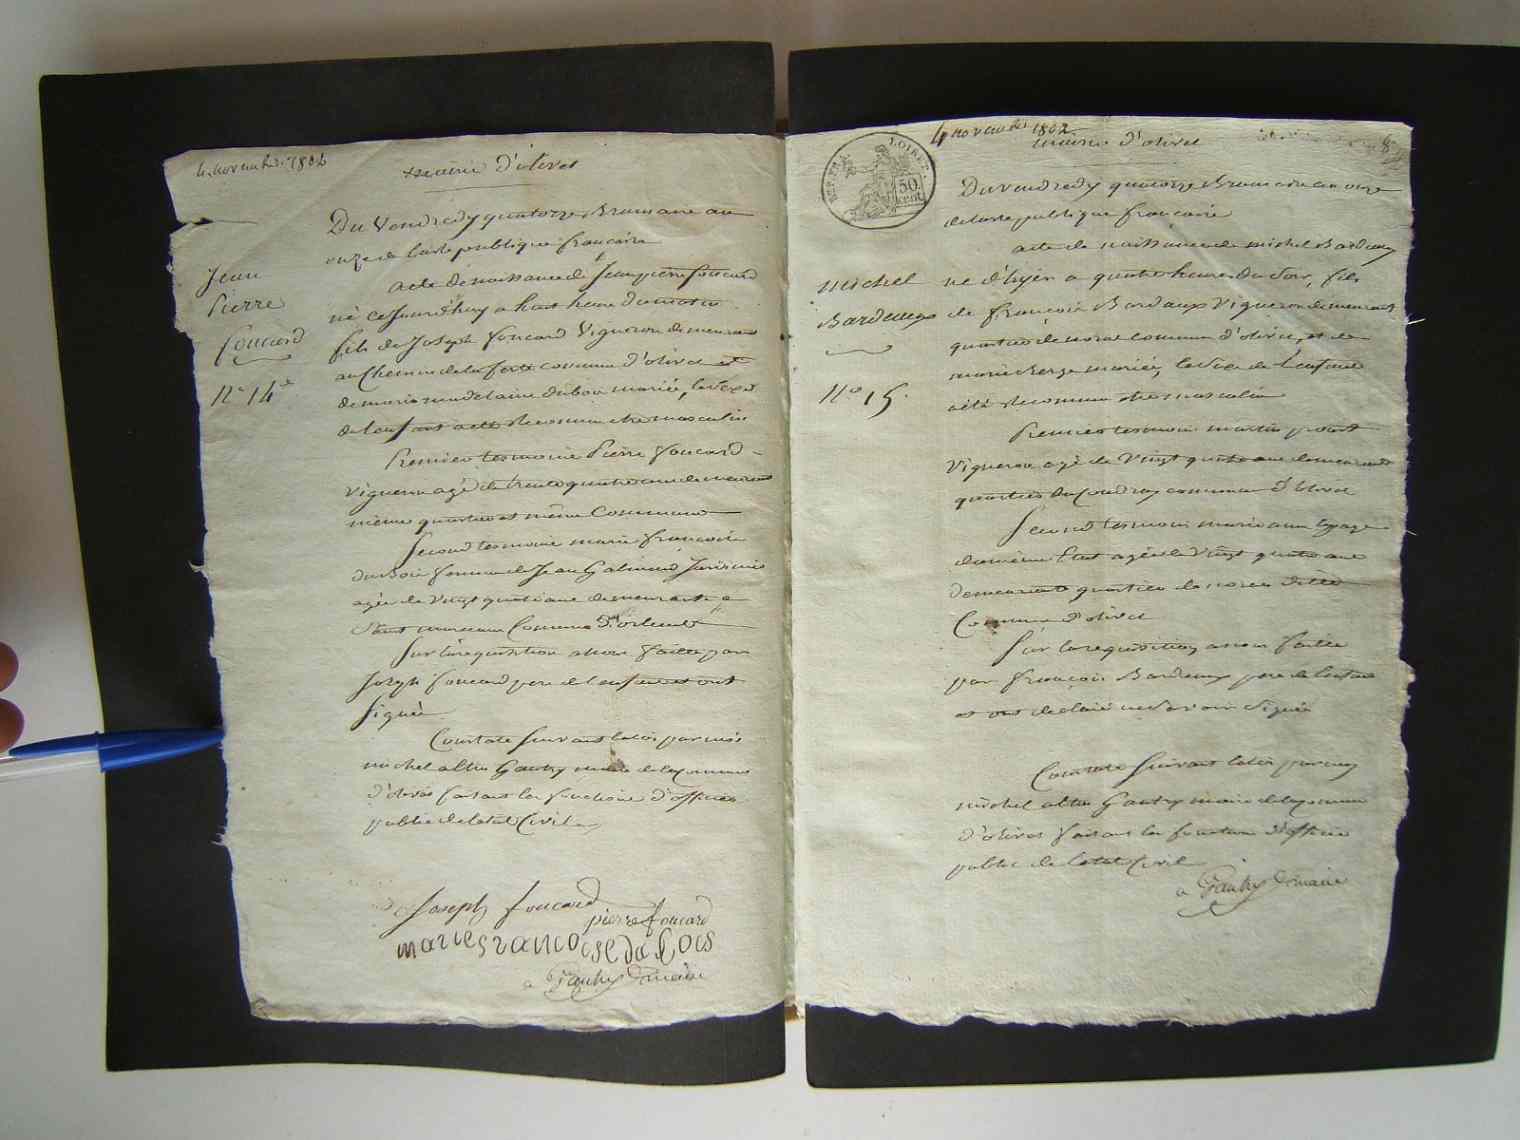 4 novembre 1802
mairie d'olivet
Du Vendredy quatorze Brumaire an
onze de la republique francaise
Jean
Pierre
foucard
N° 14e
acte de naissance de Jean pierre foucard
né cejourdhuy a huit heure du matin
fils de Joseph foucard Vigneron demeurant
au Chemin de la ferté commune d'olivet et
de marie magdelaine dubois mariée, le sexe
de lenfant a eté reconnu etre masculin
Premier temoin Pierre foucard
Vigneron agé de trente quatre ans demeurant
même quartier et même Commune
Second temoin marie francoise
duBois femme de Jean
agée de Vingt quatre ans demeurante a
Saint marceau Commune d'orleans
Sur la requisition a nous faitte par
Joseph foucard pere de lenfant et ont
signé
Constaté suivant la loi par moi
michel altin Gautry maire de la commune
d'olivet faisant les fonctions d'officier
public de letat Civil
Joseph foucard
pierre foucard
marie francoise du bois
a Gautry maire
4 novembre 1802
mairie d'olivet
8
REP. FRA.
LOIRET.
50
cent.
Du vendredy quatorze Brumaire an onze
de la republique francaise
acte de naissance de michel Bardeaux
michel
Bardeaux
N° 15.
né d'hyer a quatre heures du soir, fils
de françois Bardeaux Vigneron demeurant
quartier de commune d'olivet, et de
marie mariée, le sexe de Lenfant
a eté reconnu etre masculin
Premier temoin martin
Vigneron agé de Vingt quatre ans demeurant
quartier du Coudray commune d'olivet
Second temoin marie anne
du même Etat agée de Vingt quatre ans
demeurante quartier de ditte
Commune d'olivet
Sur la requisition a nous faitte
par françois Bardeaux pere de lenfant
et ont declaré ne savoir signer
Constaté suivant la loi par moi
michel altin Gautry maire de la commune
d'olivet faisant les fonctions d'officier
public de letat Civil
a Gautry maire